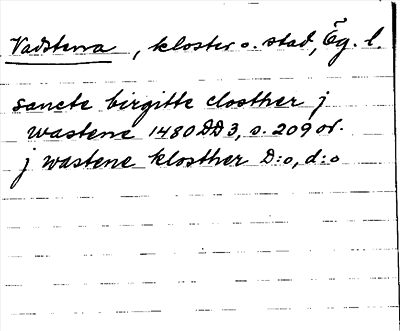 Vadstena, kloster o. stad, Ög. l.
sancte birgitte closther j
wastene 1480 DD 3, s. 209 or.
j wastene klosther D:o, d:o